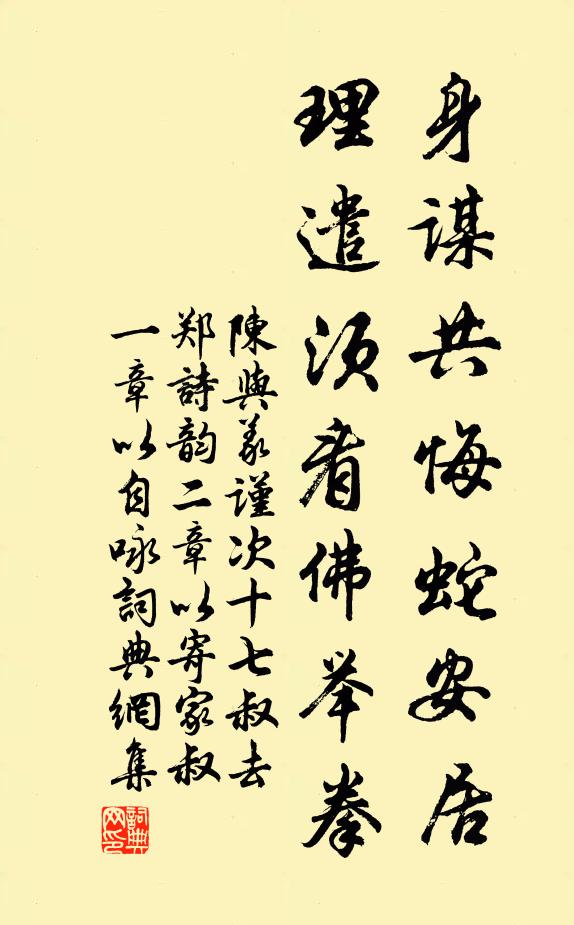 身谋共悔蛇安居
理遣须看佛举拳
陳與義谨次十七叔去
郑詩韵二章以寄家叔
一章以自咏詞典網集
詞典網印